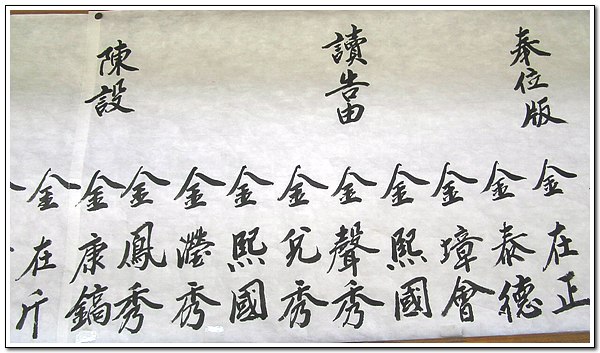 奉位版
金在正
金泰德
金璋會
金熙國
讀告由
金聲秀
金兌秀
金熙國
金瀅秀
金鳳秀
陳設
金康鎬
金在斤